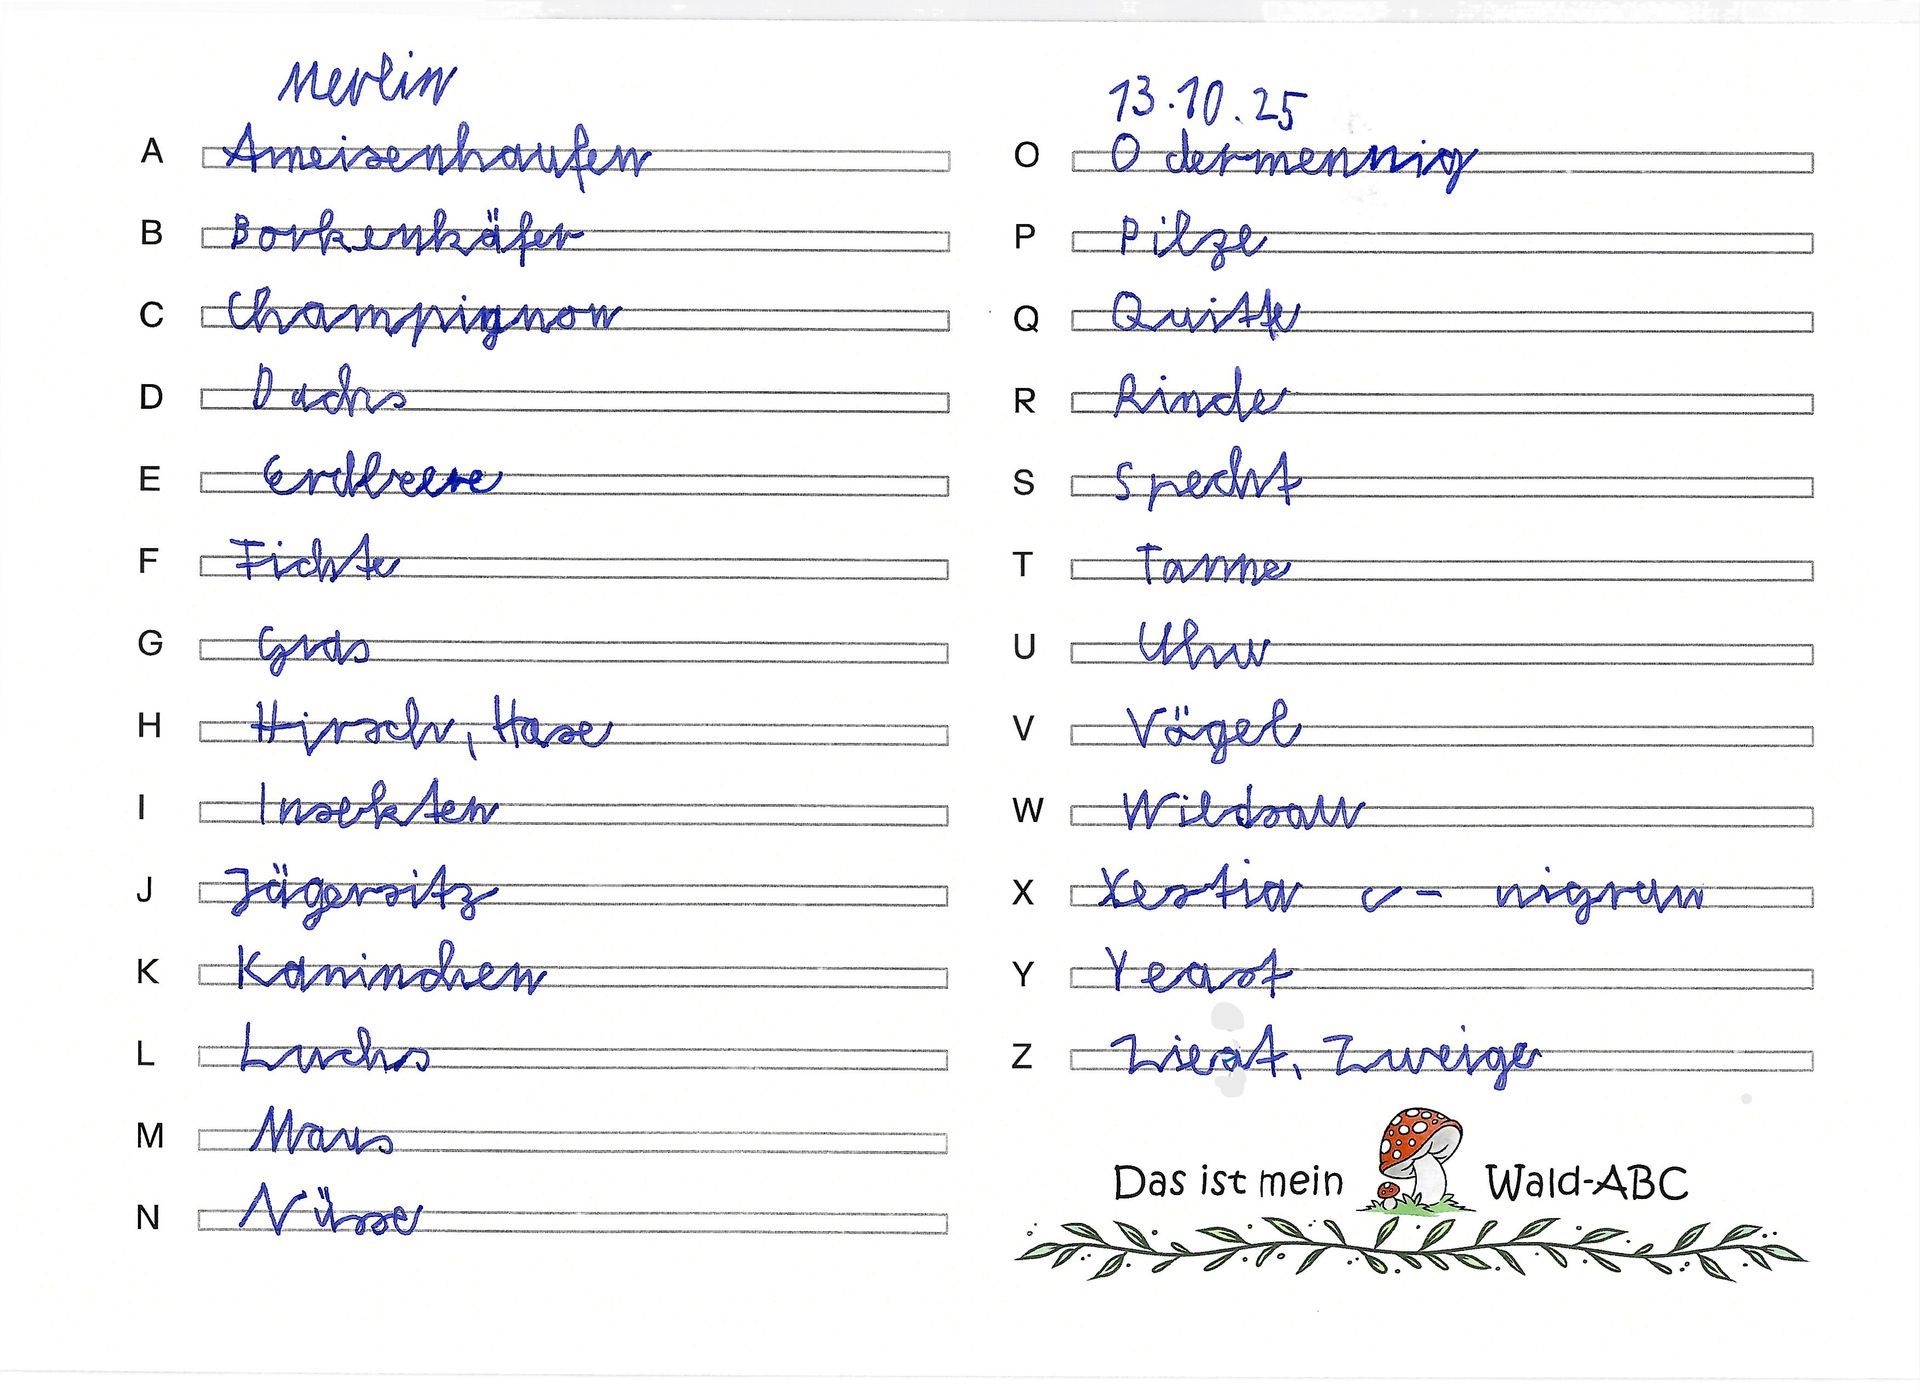 Merlin
A Ameisenhaufen
B Borkenkäfer
C Champignon
D Dachs
E Erdbeere
F Fichte
G Gras
H Hirsch, Hase
I Insekten
J Jägersitz
K Kaninchen
L Luchs
M Maus
N Nüsse
13.10.25
O Odermennig
P Pilze
Q Quitte
R Rinde
S Specht
T Tanne
U Uhu
V Vögel
W Wildsau
X Xestia c-nigrum
Y Yeast
Z Ziest, Zweige
Das ist mein Wald-ABC